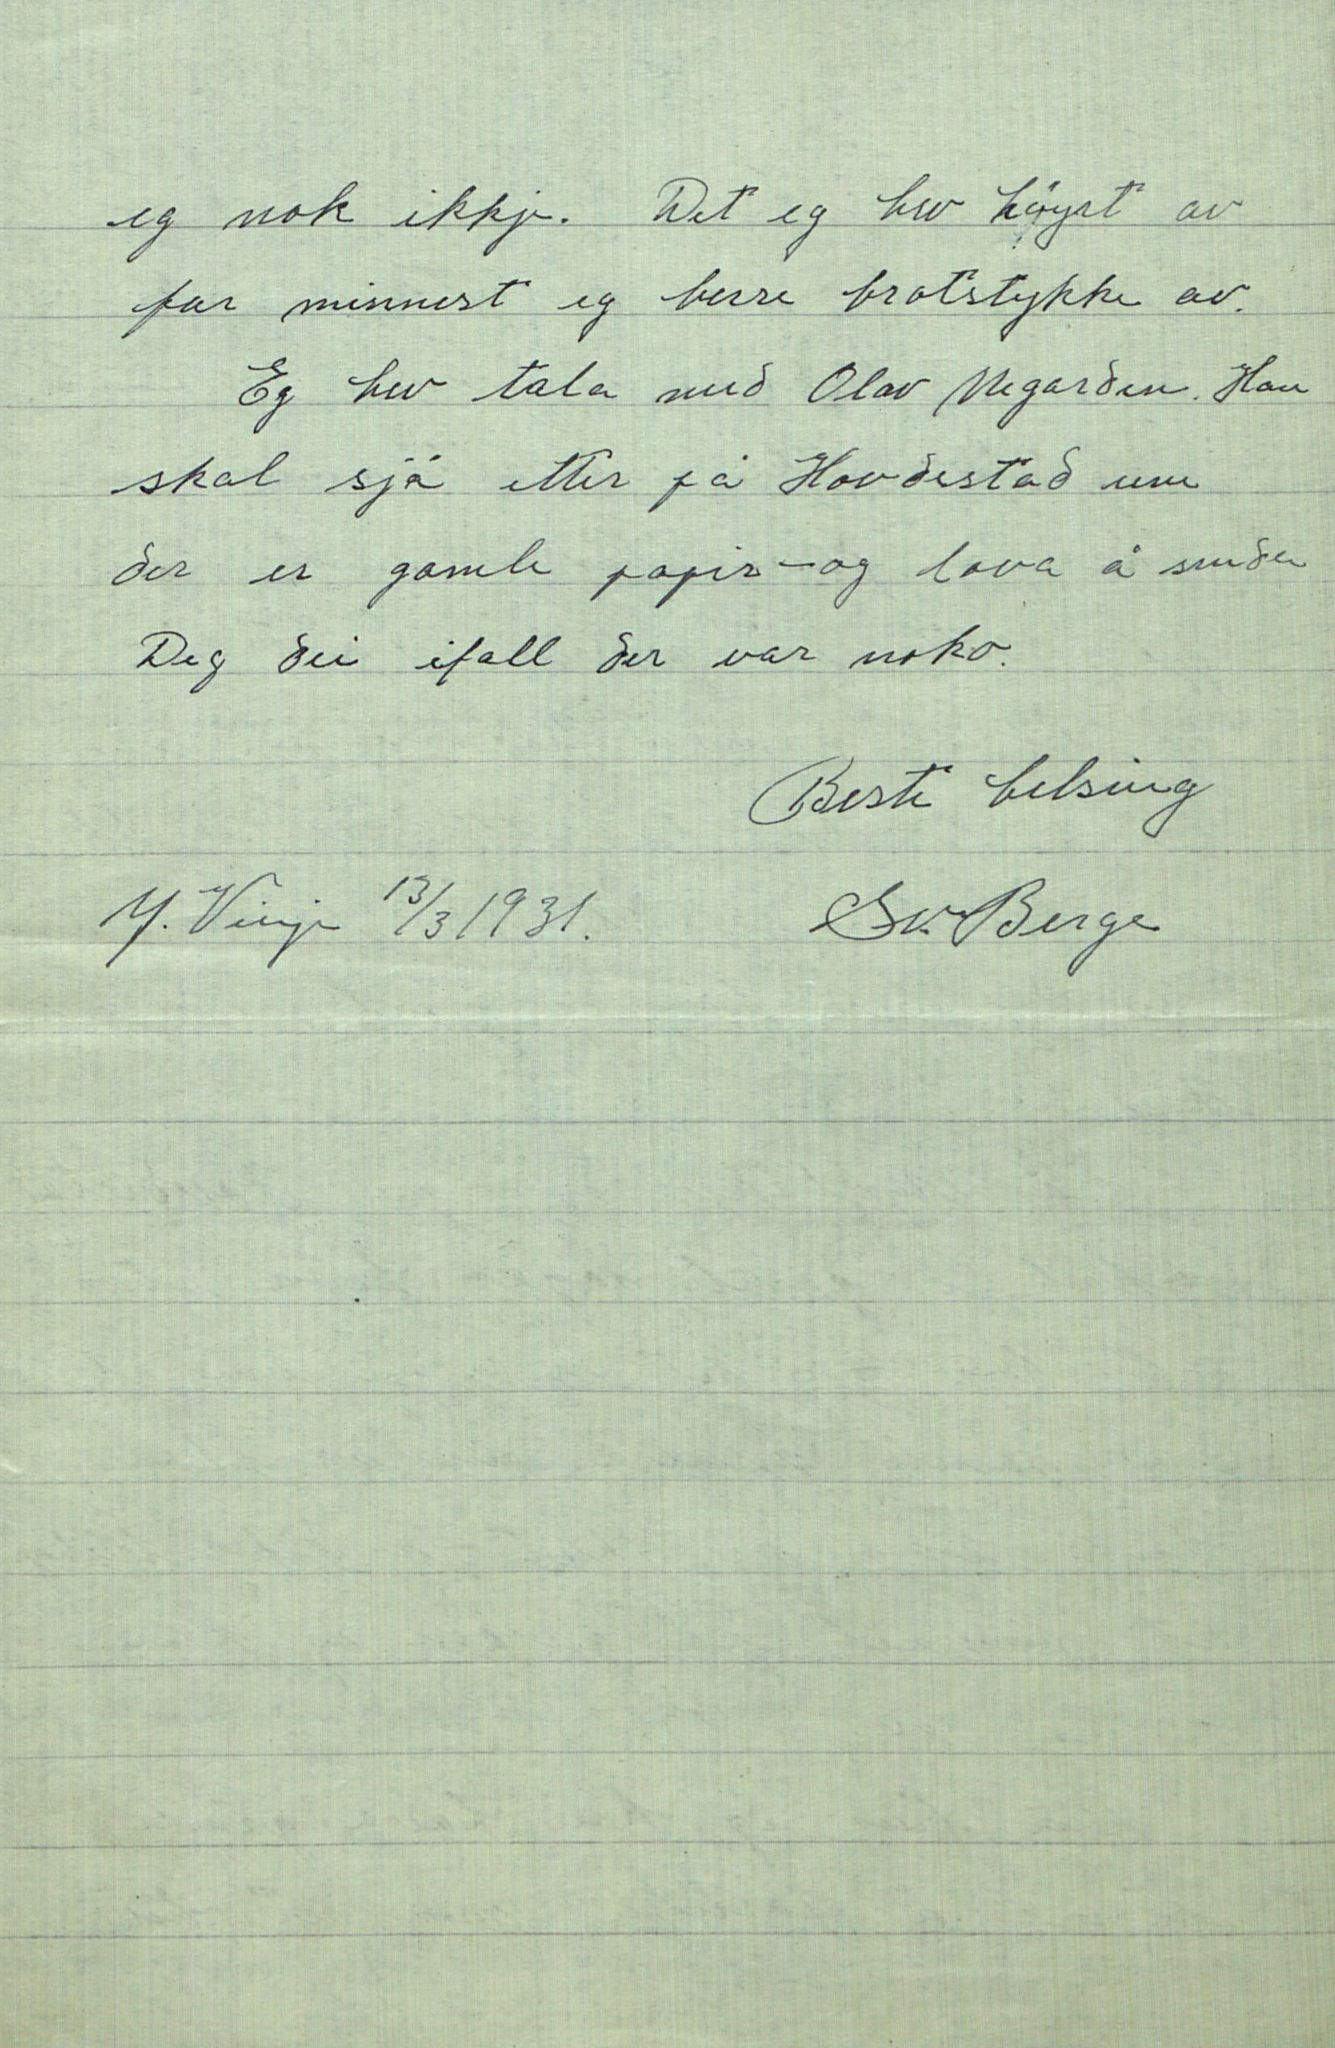 eg nok ikkje. Det eg hev höyrt av
far minnest eg berre brotstykke av.
Eg hev tala med Olav Negarden. Han
skal sjå etter på Hovdestad um
der er gamle papir - og lova å senda
Deg dei ifall der var noko.
Beste helsing
Y. Vinje 13/3 1931. Sv. Berge